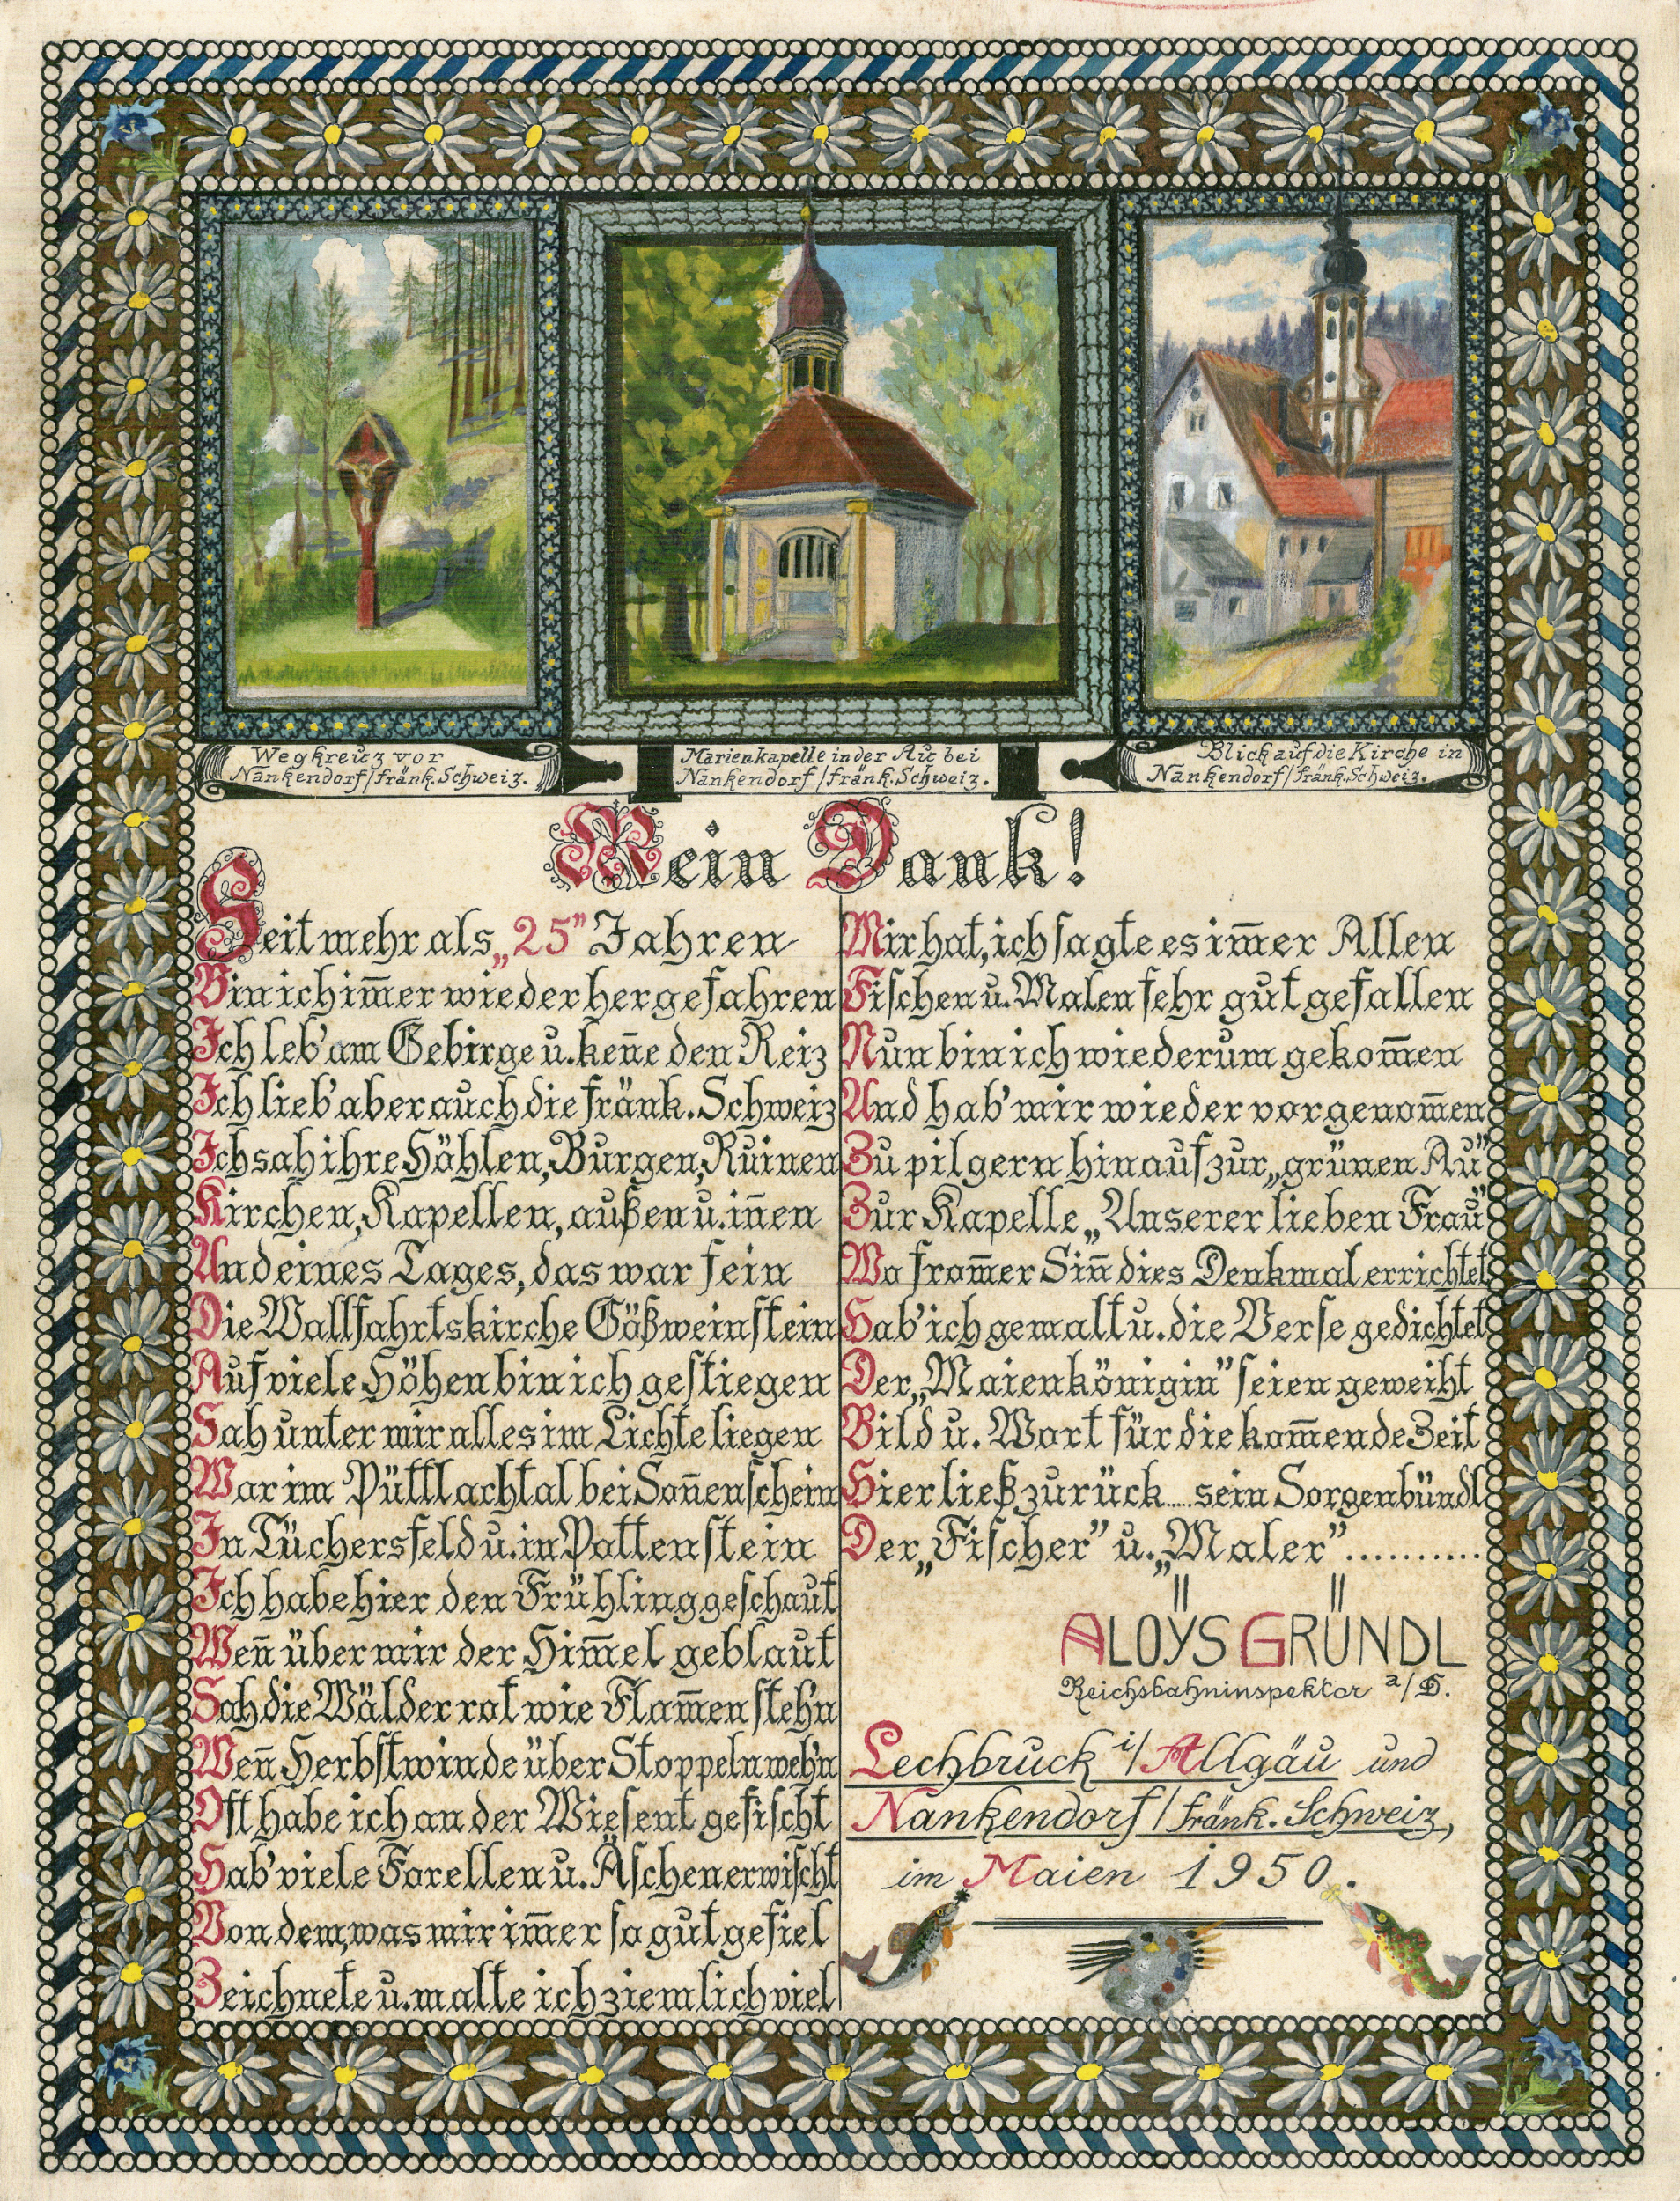 Wegkreuz vor
Nankendorf/fränk. Schweiz.
Marienkapelle in der Au bei
Nankendorf/fränk. Schweiz.
Blick auf die Kirche in
Nankendorf/fränk. Schweiz.
Mein Dank!
Seit mehr als „25” Jahren
Bin ich im̅er wieder hergefahren
Ich leb' am Gebirge u. ken̅e den Reiz
Ich lieb' aber auch die fränk. Schweiz
Ich sah ihre Höhlen, Burgen, Ruinen
Kirchen, Kapellen, außen u. in̅en
Und eines Tages, das war fein
Die Wallfahrtskirche Gößweinstein
Auf viele Höhen bin ich gestiegen
Sah unter mir alles im Lichte liegen
War im Püttlachtal bei Son̅enschein
In Tüchersfeld u. in Pottenstein
Ich habe hier den Frühling geschaut
Wen̅ über mir der Him̅el geblaut
Sah die Wälder rot wie Flam̅en steh'n
Wen̅ Herbstwinde über Stoppeln weh'n
Oft habe ich an der Wiesent gefischt
Hab' viele Forellen u. Äschen erwischt
Von dem, was mir im̅er so gut gefiel
Zeichnete u. malte ich ziemlich viel
Mir hat, ich sagte es im̅er Allen
Fischen u. Malen sehr gut gefallen
Nun bin ich wiederum gekom̅en
Und hab' mir wieder vorgenom̅en
Zu pilgern hinauf zur „grünen Au”
Zur Kapelle „Unserer lieben Frau”
Wo from̅er Sin̅ dies Denkmal errichtet
Hab' ich gemalt u. die Verse gedichtet
Der „Maienkönigin” seien geweiht
Bild u. Wort für die kom̅ende Zeit
Hier ließ zurück.... sein Sorgenbündl
Der „Fischer” u. „Maler”..........
ALOŸS GRÜNDL
Reichsbahninspektor a/D.
Lechbruck i/Allgäu und
Nankendorf/fränk. Schweiz,
im Maien 1950.